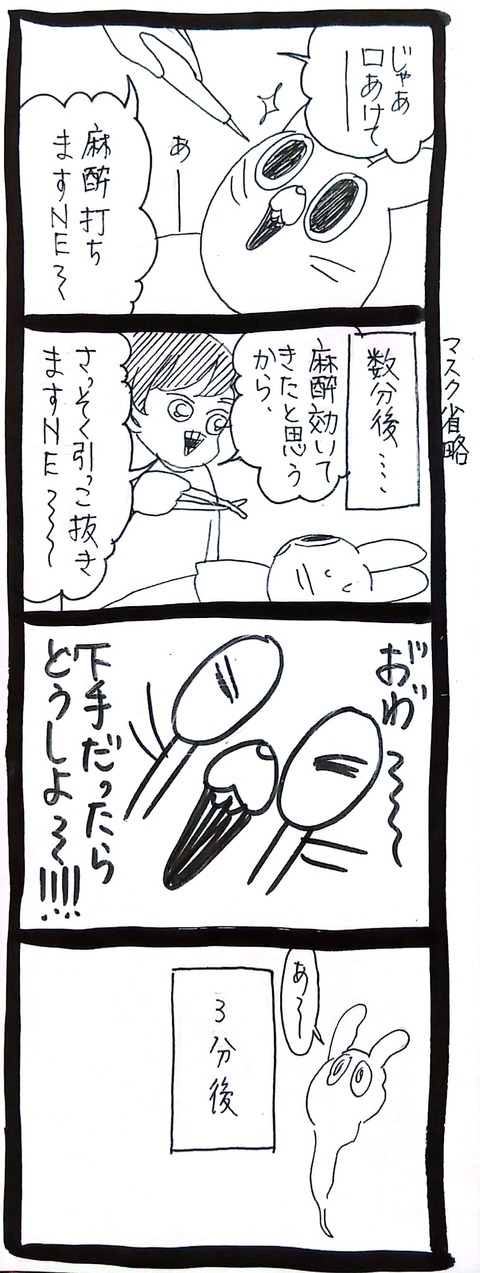 じゃあ
口あけて
ー
あー
麻酔打ち
ますNE〜
マスク省略
数分後…
麻酔効いて
きたと思う
から、
さっそく引っこ抜き
ますNE〜〜
おわ〜〜
下手だったら
どうしよ〜!!!!
あ〜
3分後